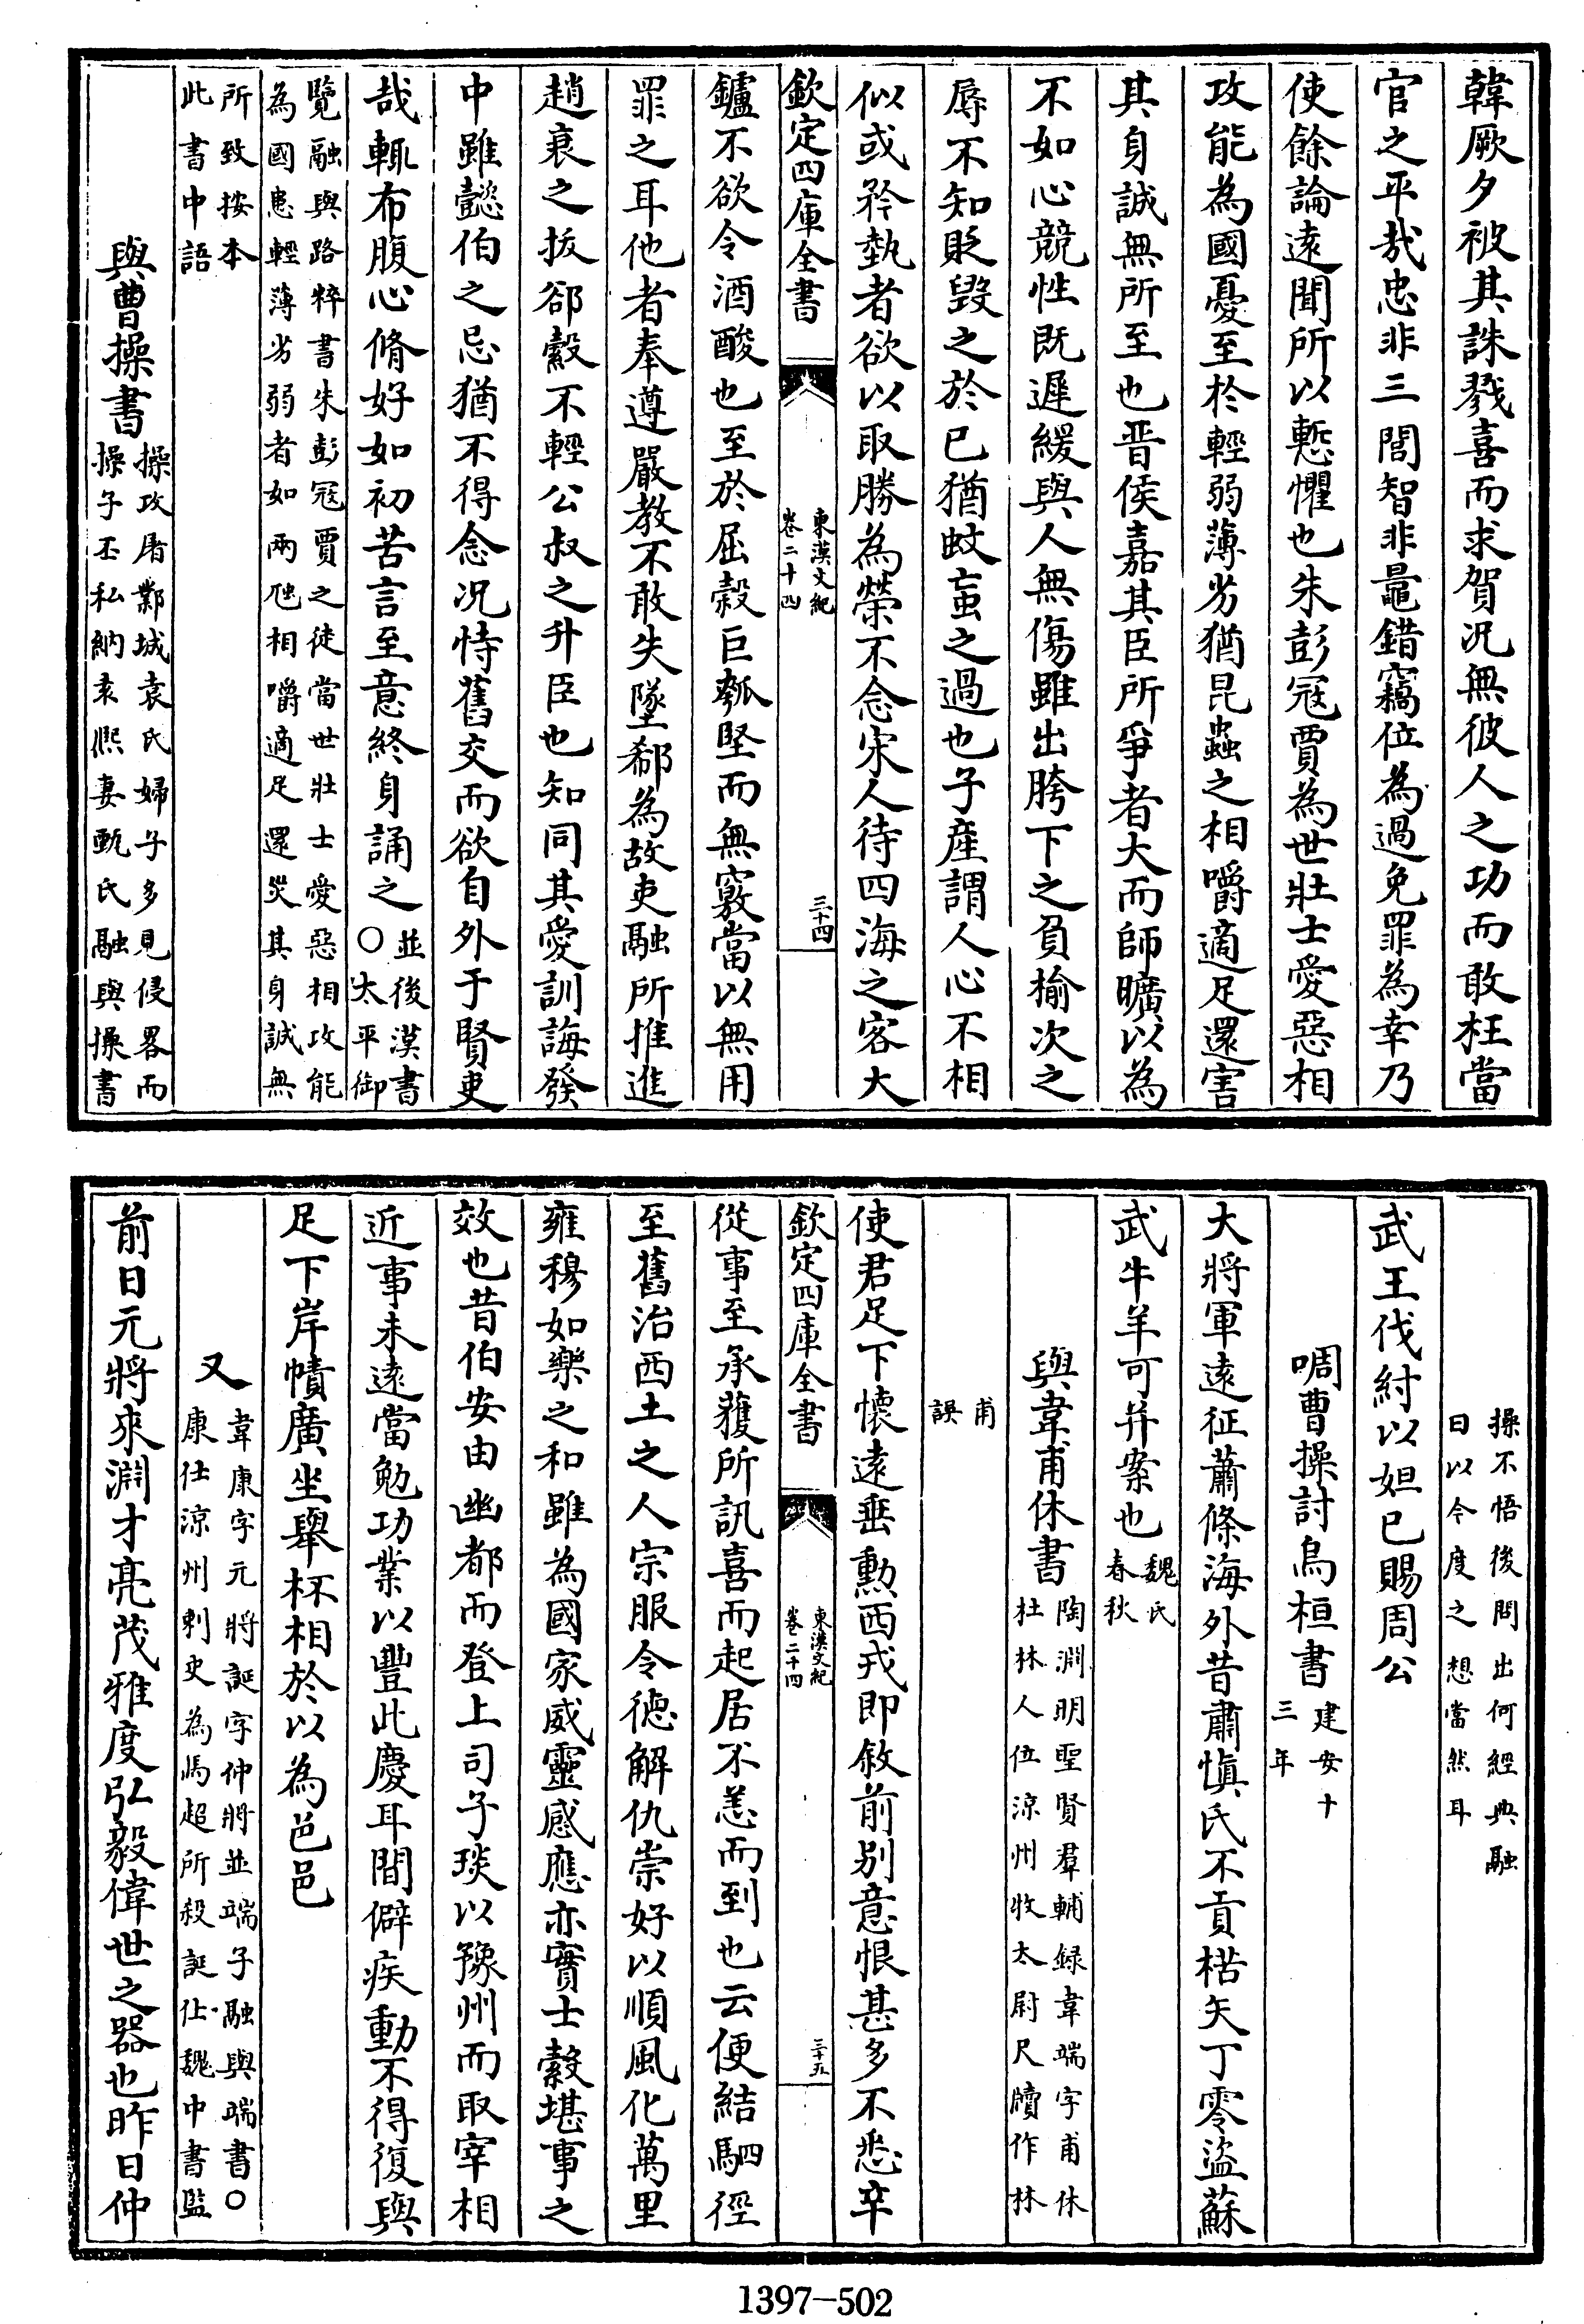 韓厥夕被其誅戮喜而求賀况無彼人之功而敢枉當
官之平哉忠非三閭智非鼂錯竊位為過免罪為幸乃
使餘論遠聞所以慙懼也朱彭冦賈為世壯士愛惡相
攻能為國憂至於輕弱薄劣猶昆蟲之相嚼適足還害
其身誠無所至也晋侯嘉其臣所爭者大而師曠以為
不如心競性既遲緩與人無傷雖出胯下之負榆次之
辱不知貶毀之於已猶蚊䖟之過也子産謂人心不相
似或矜埶者欲以取勝為榮不念宋人待四海之客大
欽定四庫全書
東漢文紀
卷二十四
三十四
鑪不欲令酒酸也至於屈榖巨瓠堅而無竅當以無用
罪之耳他者奉遵嚴教不敢失墜郗為故吏融所推進
趙衰之拔郤縠不輕公叔之升臣也知同其愛訓誨發
中雖懿伯之忌猶不得念况恃舊交而欲自外于賢吏
哉輒布腹心脩好如初苦言至意終身誦之
並後漢書
○太平御
覽融與路粹書朱彭冦賈之徒當世壯士愛惡相攻能
為國患輕薄劣弱者如兩虺相嚼適足還災其身誠無
所致按本
此書中語
與曹操書
操攻屠鄴城袁氏婦子多見侵畧而
操子丕私納袁熙妻甄氏融與操書
操不悟後問出何經典融
曰以今度之想當然耳
武王伐紂以妲已賜周公
啁曹操討烏桓書
建安十
三年
大將軍遠征蕭條海外昔肅慎氏不貢楛矢丁零盜蘇
武牛羊可并案也
魏氏
春秋
與韋甫休書
陶淵明聖賢羣輔録韋端字甫休
杜林人位涼州牧太尉尺牘作林
甫
誤
使君足下懷遠垂勲西戎即敘前别意恨甚多不悉卒
欽定四庫全書
東漢文紀
卷二十四
三十五
從事至承獲所訊喜而起居不恙而到也云便結駟徑
至舊治西土之人宗服令徳解仇崇好以順風化萬里
雍穆如樂之和雖為國家威靈感應亦實士縠堪事之
效也昔伯安由幽都而登上司子琰以豫州而取宰相
近事未遠當勉功業以豐此慶耳閒僻疾動不得復與
足下岸幘廣坐舉杯相於以為邑邑
又
韋康字元將誕字仲將並端子融與端書○
康仕涼州刺史為馬超所殺誕仕魏中書監
前日元將來淵才亮茂雅度弘毅偉世之器也昨日仲
1397—502